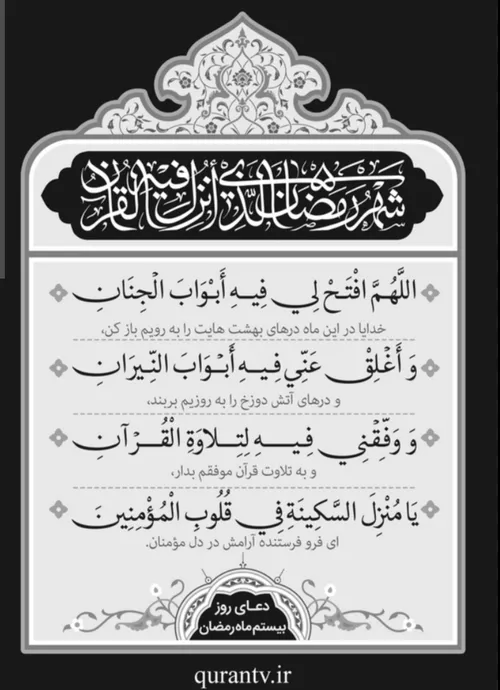 شَهْرُ رَمَضَانَ الَّذِي أُنْزِلَ فِيهِ الْقُرْآنُ
اللَّهُمَّ افْتَحْ لِي فِيهِ أَبْوَابَ الْجِنَانِ
خدایا در این ماه درهای بهشت هایت را به رویم باز کن،
وَ أَغْلِقْ عَنِّي فِيهِ أَبْوَابَ النِّيرَانِ
و درهای آتش دوزخ را به روزیم بربند،
وَ وَفِّقْنِي فِيهِ لِتِلَاوَةِ الْقُرْآنِ
و به تلاوت قرآن موفقم بدار،
يَا مُنْزِلَ السَّكِينَةِ فِي قُلُوبِ الْمُؤْمِنِينَ
ای فرو فرستنده آرامش در دل مؤمنان.
دعای روز
بیستم ماه رمضان
qurantv.ir